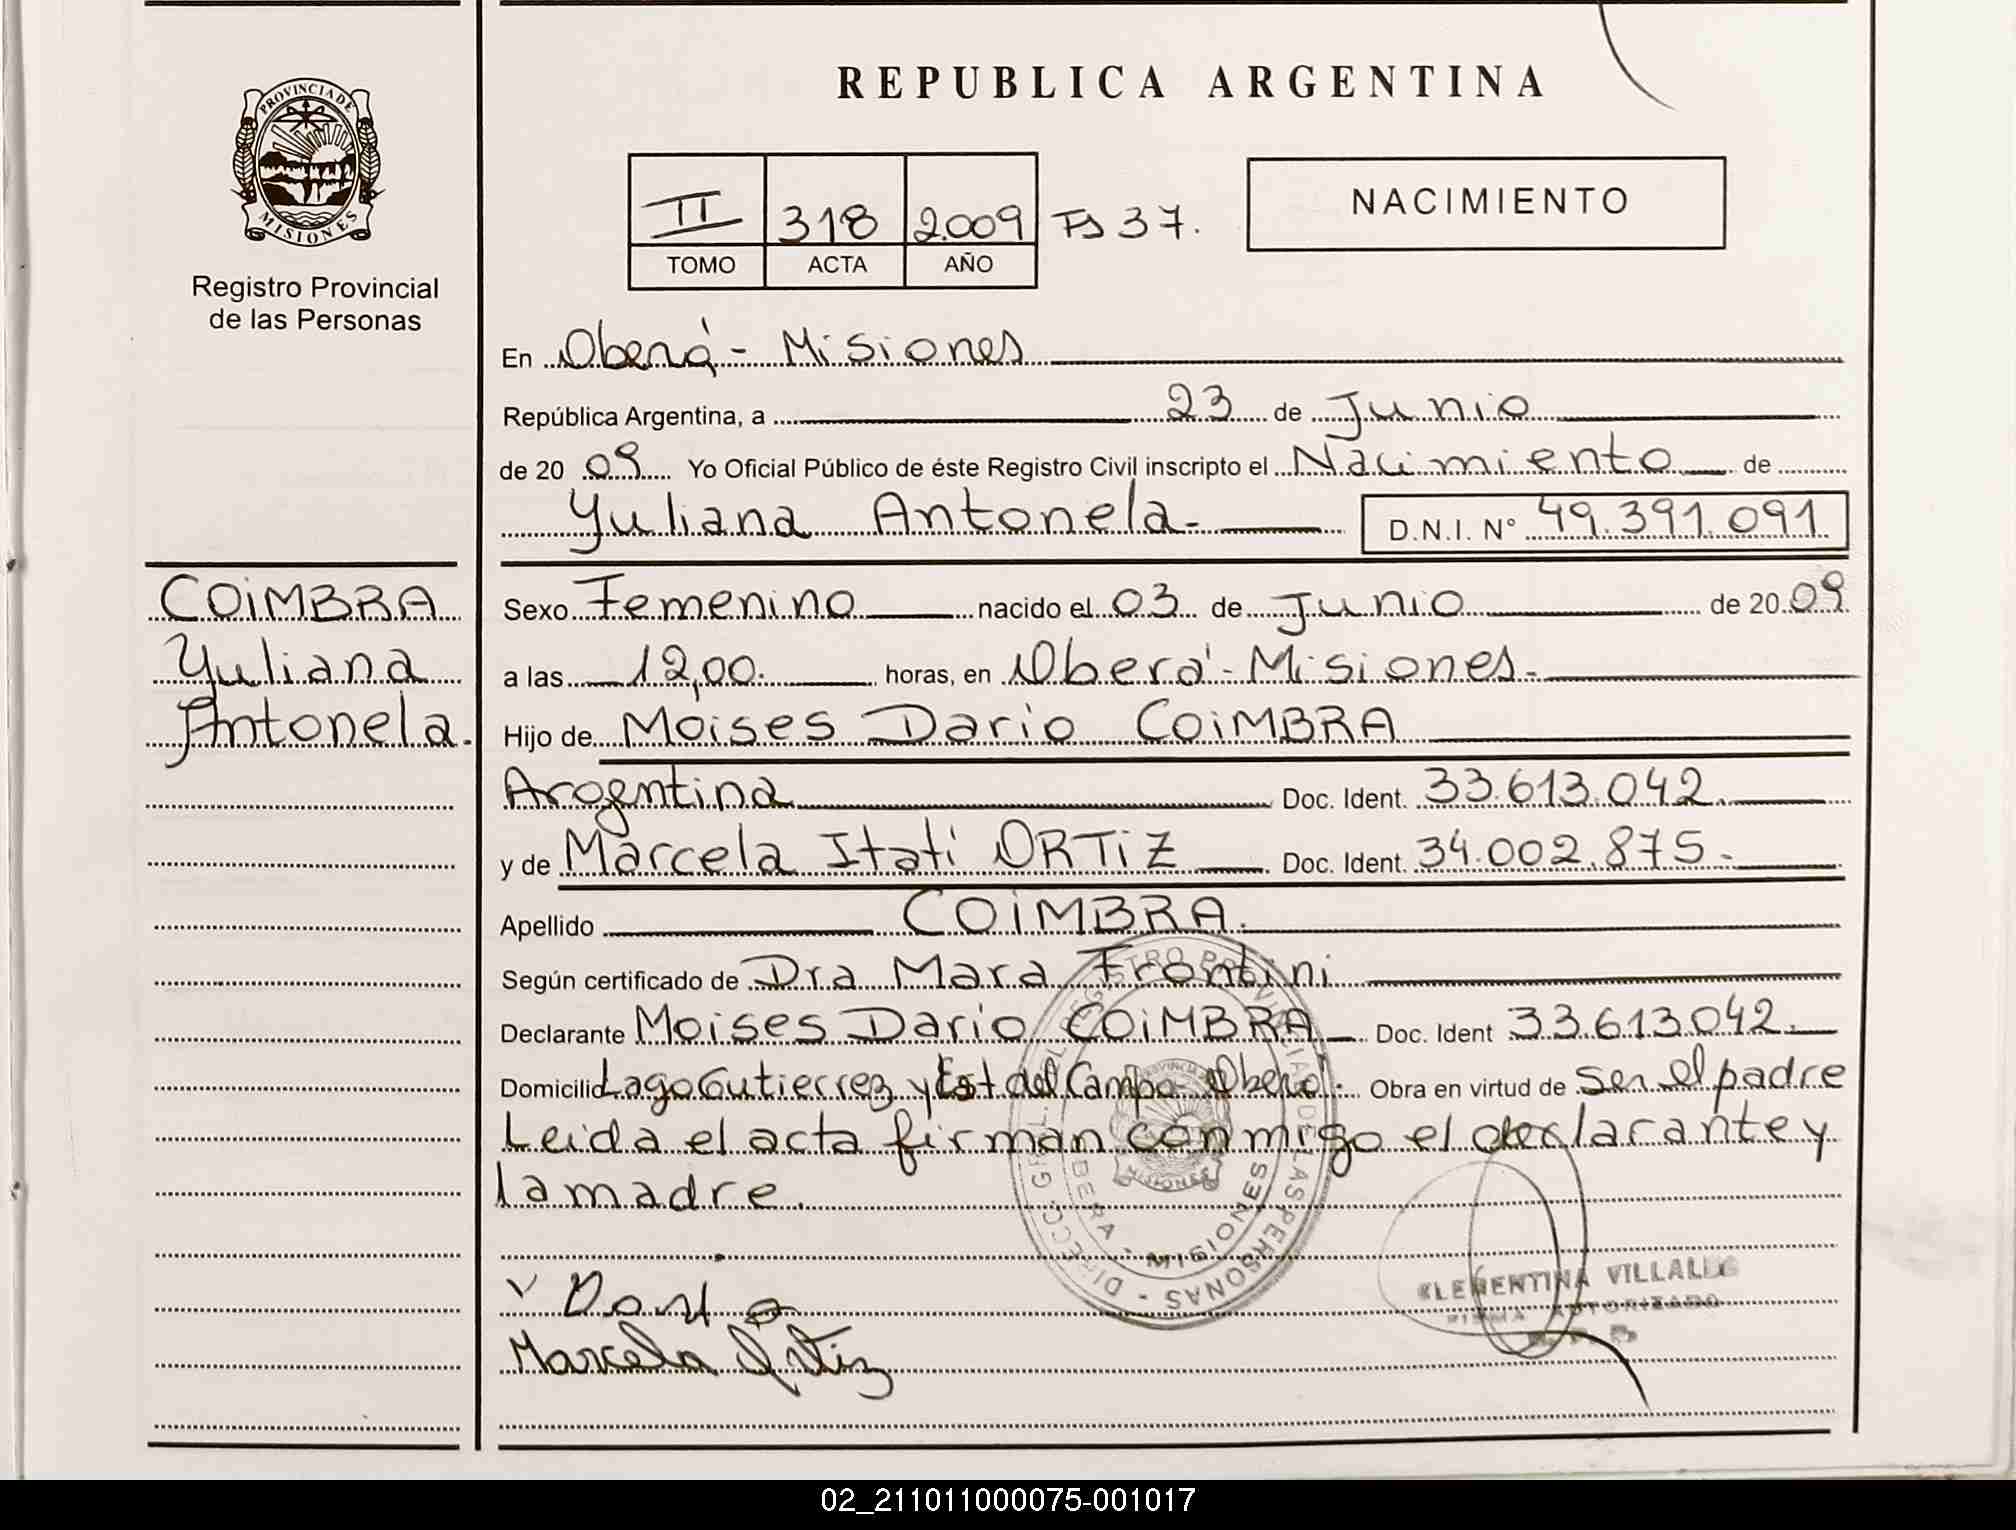 PROVINCIA DE
MISIONES
Registro Provincial
de las Personas
REPUBLICA ARGENTINA
II 318 2.009 Fs 37.
TOMO ACTA AÑO
NACIMIENTO
En Oberá - Misiones
República Argentina, a 23 de Junio
de 20 09 Yo Oficial Público de éste Registro Civil inscripto el Nacimiento de
Yuliana Antonela- D.N.I. N° 49.391.091
COiMBRA
Yuliana
Antonela.
Sexo Femenino nacido el 03 de Junio de 20 09
a las 12,00. horas, en Oberá - Misiones.
Hijo de Moises Dario COiMBRA
Argentina Doc. Ident. 33.613.042.
y de Marcela Itati ORTiZ Doc. Ident. 34.002.875.
Apellido COiMBRA.
Según certificado de Dra Mara Frontini
Declarante Moises Dario COiMBRA Doc. Ident 33.613.042.
Domicilio Lago Gutierrez y Est del Campo - Oberá. Obra en virtud de ser el padre
Leida el acta firman conmigo el declarante y
la madre.
DIRECC. GRAL. DEL REGISTRO PROVINCIAL DE LAS PERSONAS -
OBERA - MISIONES
CLEMENTINA
FIRMA AUTORIZADA
Marcela Ortiz
02_211011000075-001017